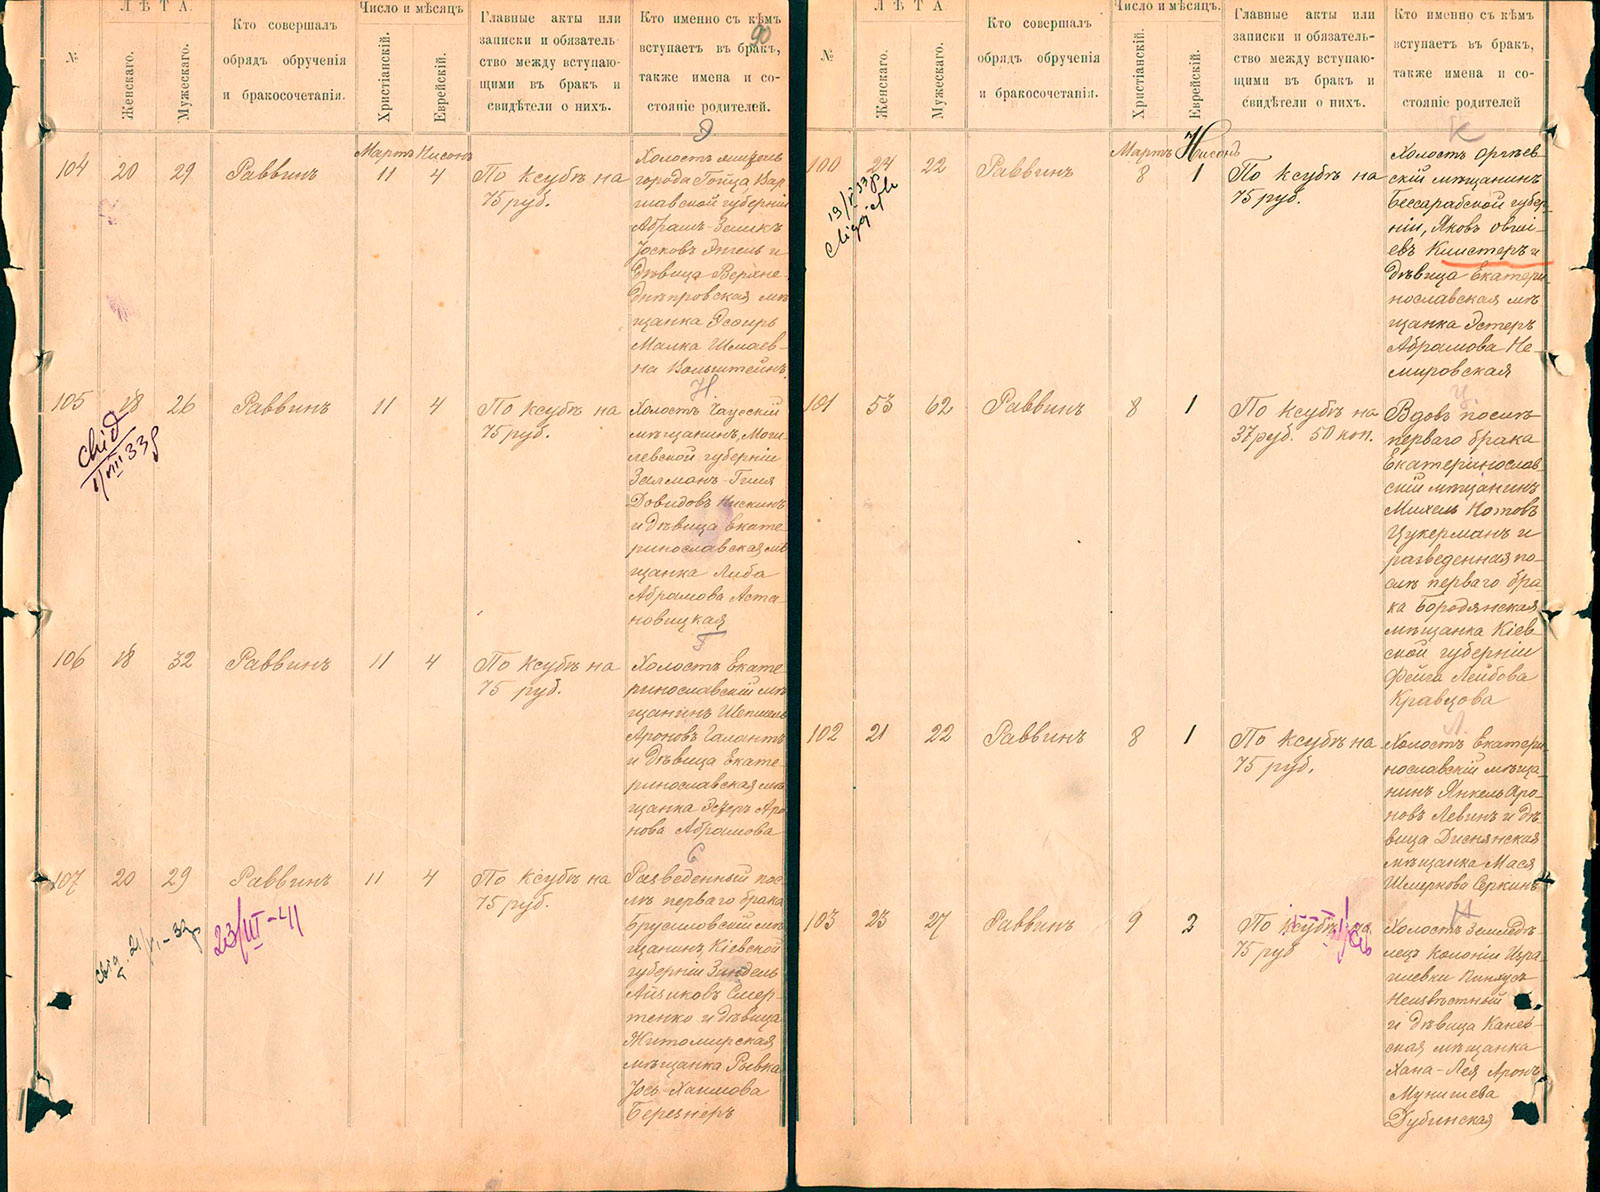 №
ЛѢТА.
Женскаго.
Мужескаго.
Кто совершалъ
обрядъ обрученія
и бракосочетанія.
Число и мѣсяцъ
Христіанскій.
Еврейскій.
Главные акты или
записки и обязатель-
ство между вступаю-
щими въ бракъ и
свидѣтели о нихъ.
Кто именно съ кѣмъ
вступаетъ въ бракъ,
также имена и со-
стояніе родителей.
90
Мартъ Нисонъ
104 20 29 Раввинъ 11 4
По ксубѣ на
75 руб.
Э
Холостъ
города Гойца Вар
шавской губерніи
Абрамъ-Зеликъ
Іосковъ Энгель и
Дѣвица Верхне-
Днѣпровская мѣ
щанка Эсфирь
Малка Шмаев-
на Вольштейнъ
105 18 26 Раввинъ 11 4
По ксубѣ на
75 руб.
Н
Холостъ Чаусскій
мѣщанинъ, Моги-
левской губерніи
Залманъ-Гиля
Довидовъ Нискинъ
и дѣвица Екате-
ринославская мѣ
щанка Либа
Абрамова Аста-
новицкая
106 18 32 Раввинъ 11 4
По ксубѣ на
75 руб.
Г
Холостъ Екате
ринославскій мѣ
щанинъ Шепшель
Ароновъ Галантъ
и Дѣвица Екате-
ринославская мѣ
щанка Эстеръ Аро
нова Абрамова
107 20 29 Раввинъ 11 4
По ксубѣ на
75 руб.
23/III-41
С
Разведенный пос-
лѣ перваго брака
Брусиловскій мѣ
щанинъ, Кіевской
губерніи Зиндель
Айзиковъ Смер-
тенко и дѣвица
Житомирская
мѣщанка Рывка
Іось-Хаимова
Березнеръ
№
ЛѢТА
Женскаго.
Мужескаго.
Кто совершалъ
обрядъ обрученія
и бракосочетанія.
Число и мѣсяцъ.
Христіанскій.
Еврейскій.
Главные акты или
записки и обязатель-
ство между вступаю-
щими въ бракъ и
свидѣтели о нихъ.
Кто именно съ кѣмъ
вступаетъ въ бракъ,
также имена и со-
стояніе родителей
Мартъ Нисонъ
100 24 22 Раввинъ 8 1
По ксубѣ на
75 руб.
К
Холостъ Оргѣев-
скій мѣщанинъ
Бессарабской губер-
ніи, Яковъ Овші-
евъ Клистеръ и
Дѣвица Екатери
нославская мѣ
щанка Эстеръ
Абрамова Не-
мировская
101 53 62 Раввинъ 8 1
По ксубѣ на
37 руб. 50 коп.
Ц
Вдовъ послѣ
перваго брака
Екатеринослав-
скій мѣщанинъ
Михель Нотовъ
Цукерманъ и
разведенная по-
слѣ перваго бра-
ка Бородянская
мѣщанка Кіев
ской губерніи
Фейга Лейбова
Кравцова
102 21 22 Раввинъ 8 1
По ксубѣ на
75 руб.
Л.
Холостъ Екатери
нославскій мѣща-
нинъ Янкель Аро-
новъ Левинъ и дѣ-
вица Диснянская
мѣщанка Мася
Шмеркова Серкинъ
103 23 27 Раввинъ 9 2
По ксубѣ на
75 руб
Н
Холостъ Земледѣ-
лецъ колоніи Изра-
илевки Пинхусъ
Неизвѣстный
и дѣвица Канев-
ская мѣщанка
Хана-Лея Аронъ
Мунишева
Дубинская